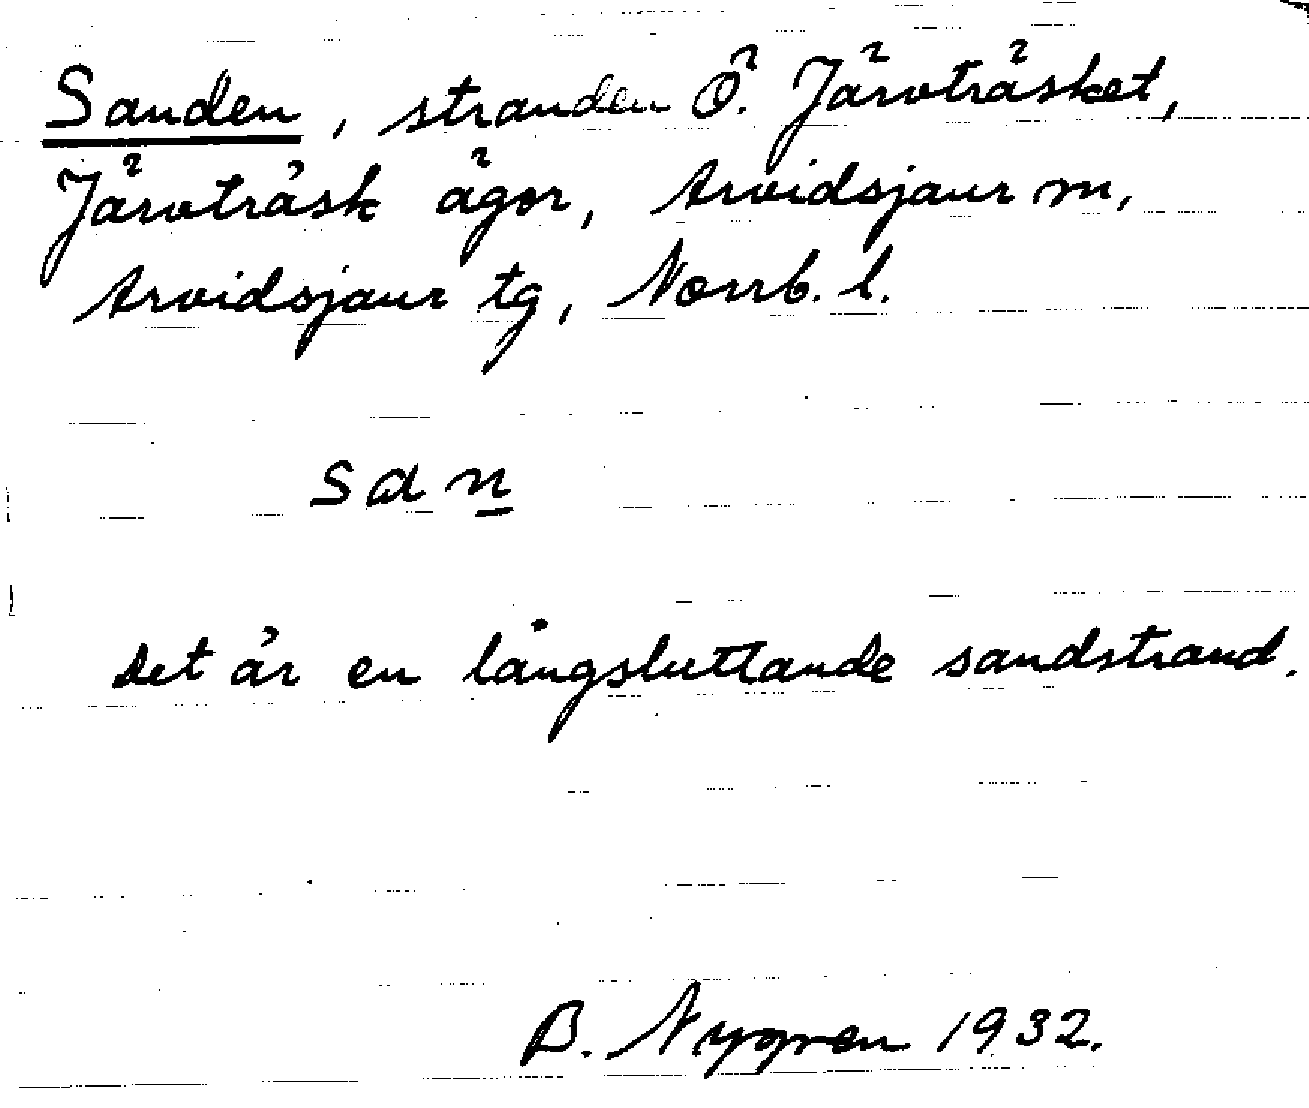 Sanden, stranden Ö. Järvträsket,
Järvträsk ägor, Arvidsjaur sn,
Arvidsjaur tg, Norrb. l.
san̲
Det är en långsluttande sandstrand.
B. Nygren 1932.